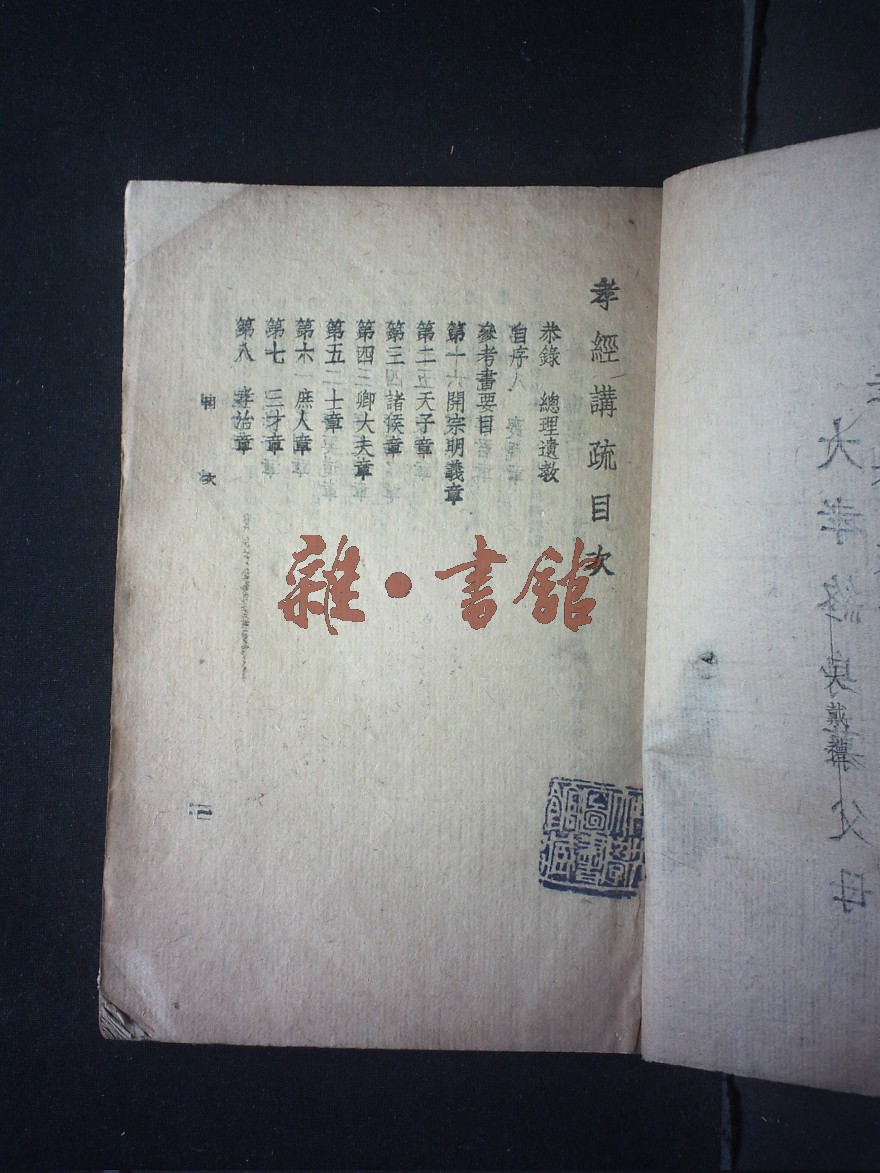 孝經講疏目次
恭錄 總理遺教
自序
參考書要目
第一 開宗明義章
第二 天子章
第三 諸侯章
第四 卿大夫章
第五 士章
第六 庶人章
第七 三才章
第八 孝治章
目次
一
雜·書館
大孝終身慕父母